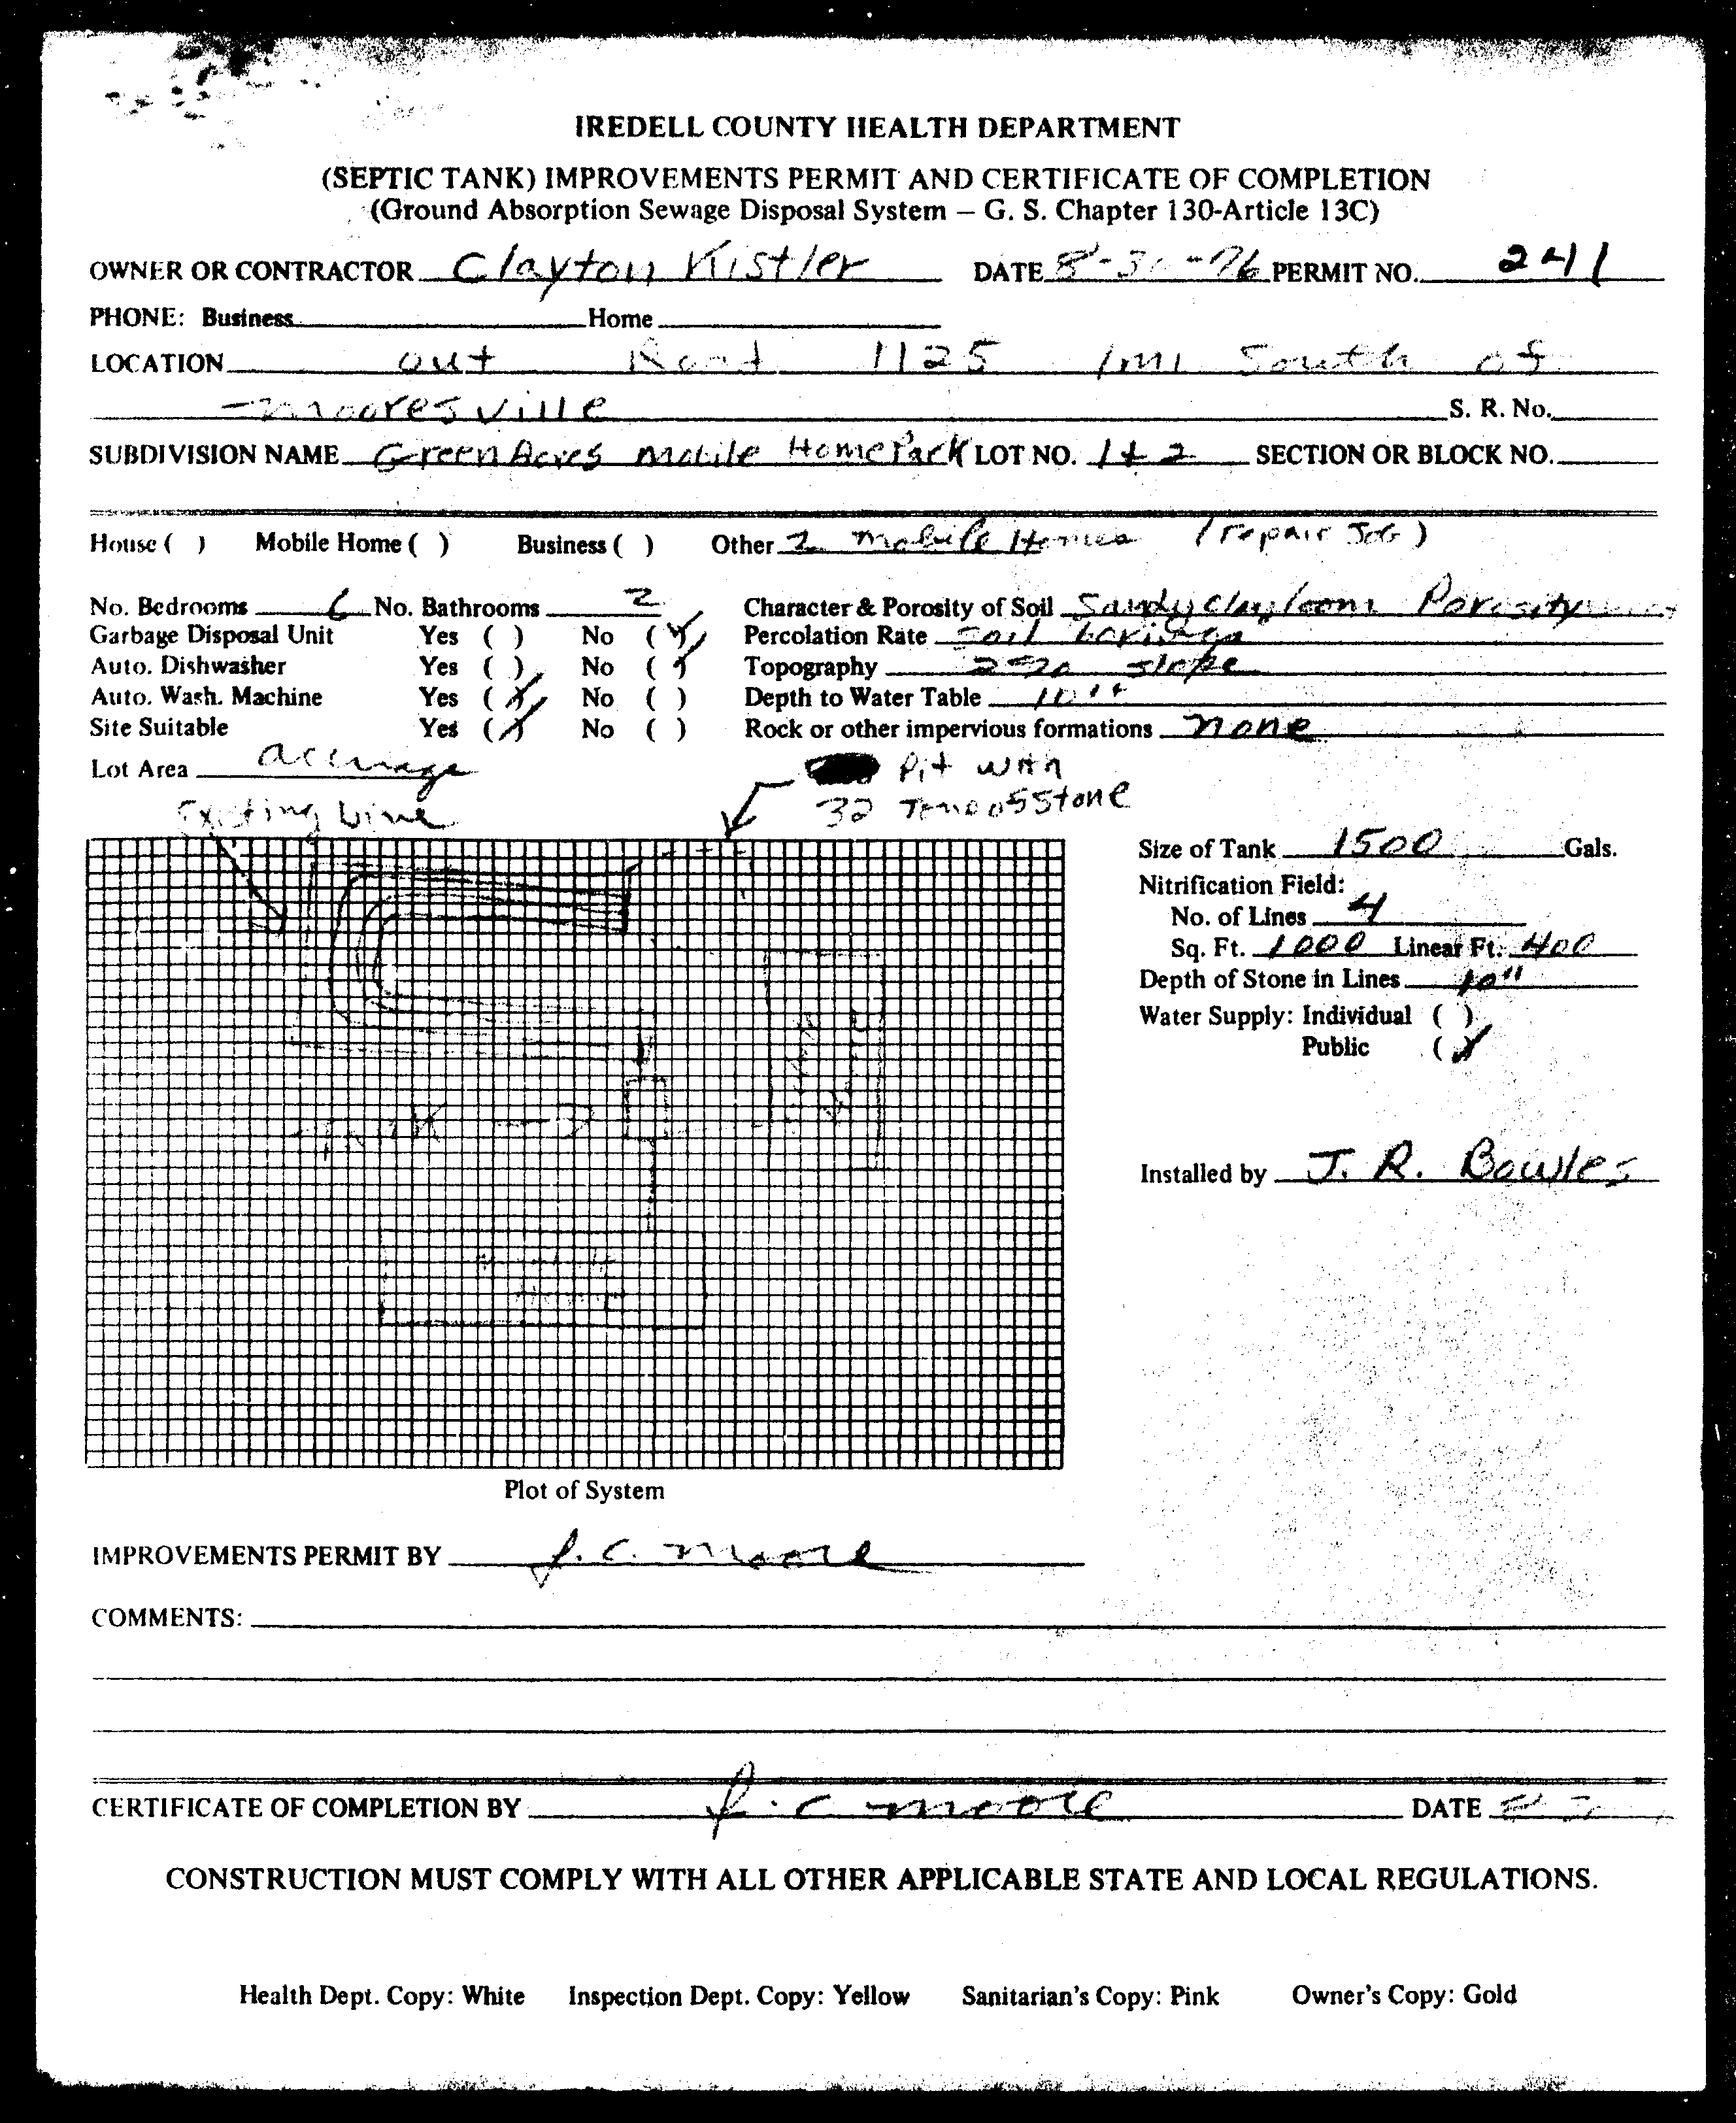 IREDELL COUNTY HEALTH DEPARTMENT
(SEPTIC TANK) IMPROVEMENTS PERMIT AND CERTIFICATE OF COMPLETION
(Ground Absorption Sewage Disposal System – G. S. Chapter 130-Article 13C)
OWNER OR CONTRACTOR Clayton Kistler DATE PERMIT NO. 241
PHONE: Business Home
LOCATION out Road 1125 1 mi South of
Mooresville S. R. No.
SUBDIVISION NAME Green Acres Mobile Home Park LOT NO. 1 & 2 SECTION OR BLOCK NO.
House ( ) Mobile Home ( ) Business ( ) Other 2 Mobile Homes (repair Job)
No. Bedrooms 6 No. Bathrooms 2 Character & Porosity of Soil Sandy clay loam Porosity
Garbage Disposal Unit Yes ( ) No (✓) Percolation Rate soil borings
Auto. Dishwasher Yes ( ) No (✓) Topography slope
Auto. Wash. Machine Yes (✓) No ( ) Depth to Water Table
Site Suitable Yes (✓) No ( ) Rock or other impervious formations none
Lot Area
Pit with
32 Tons of Stone
Existing Line
Size of Tank 1500 Gals.
Nitrification Field:
No. of Lines 4
Sq. Ft. 1000 Linear Ft. 400
Depth of Stone in Lines 10"
Water Supply: Individual ( )
Public (✓)
TANK
Installed by J. R. Bowles
Plot of System
IMPROVEMENTS PERMIT BY J. C. Moore
COMMENTS:
CERTIFICATE OF COMPLETION BY J. C. Moore DATE
CONSTRUCTION MUST COMPLY WITH ALL OTHER APPLICABLE STATE AND LOCAL REGULATIONS.
Health Dept. Copy: White Inspection Dept. Copy: Yellow Sanitarian's Copy: Pink Owner's Copy: Gold